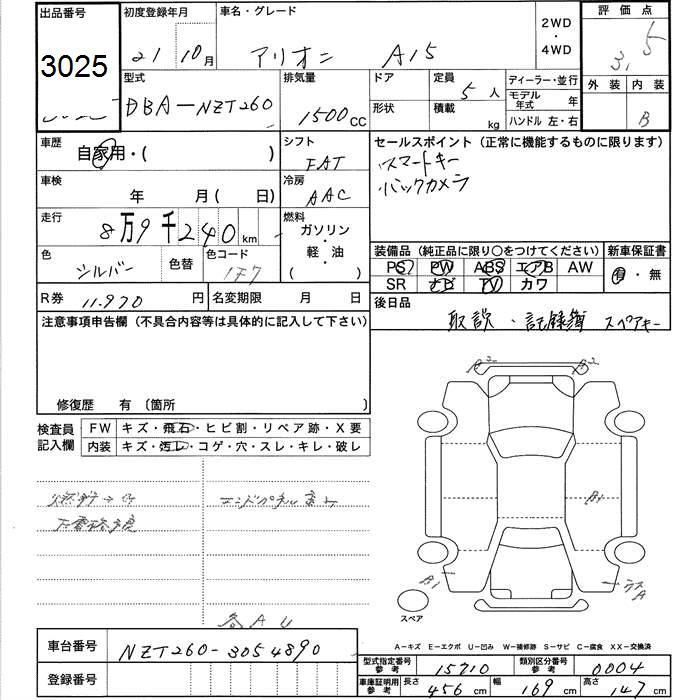 出品番号 初度登録年月 車名・グレード 2WD ・ 4WD 評価点
3025 21 10月 アリオン A15 3.5
型式 排気量 ドア 定員 ディーラー・並行 外装 内装
DBA-NZT260 1500cc 5人 モデル年式 年
形状 積載 kg ハンドル 左・右 B
車歴 自家用・( ) シフト FAT セールスポイント(正常に機能するものに限ります)
スマートキー
バックカメラ
車検 年 月( 日) 冷房 AAC
走行 8万9千240km 燃料 ガソリン・軽・油( )
色 シルバー 色替 色コード 1F7
装備品(純正品に限り○をつけてください) 新車保証書
PS PW ABS エアB AW 有・無
SR ナビ TV カワ
R券 11.970円 名変期限 月 日
後日品
取説・記録簿 スペアキー
注意事項申告欄(不具合内容等は具体的に記入して下さい)
修復歴 有 〔箇所 〕
検査員記入欄 FW キズ・飛石・ヒビ割・リペア跡・X要
内装 キズ・汚レ・コゲ・穴・スレ・キレ・破レ
エンドパネル
下廻
各AU
B1
A
スペア
A−キズ E−エクボ U−凹み W−補修跡 S−サビ C−腐食 XX−交換済
車台番号 NZT260-3054890
登録番号
型式指定番号 参考 15710 類別区分番号 参考 0004
車庫証明用 参考 長さ 456cm 幅 169cm 高さ 147cm